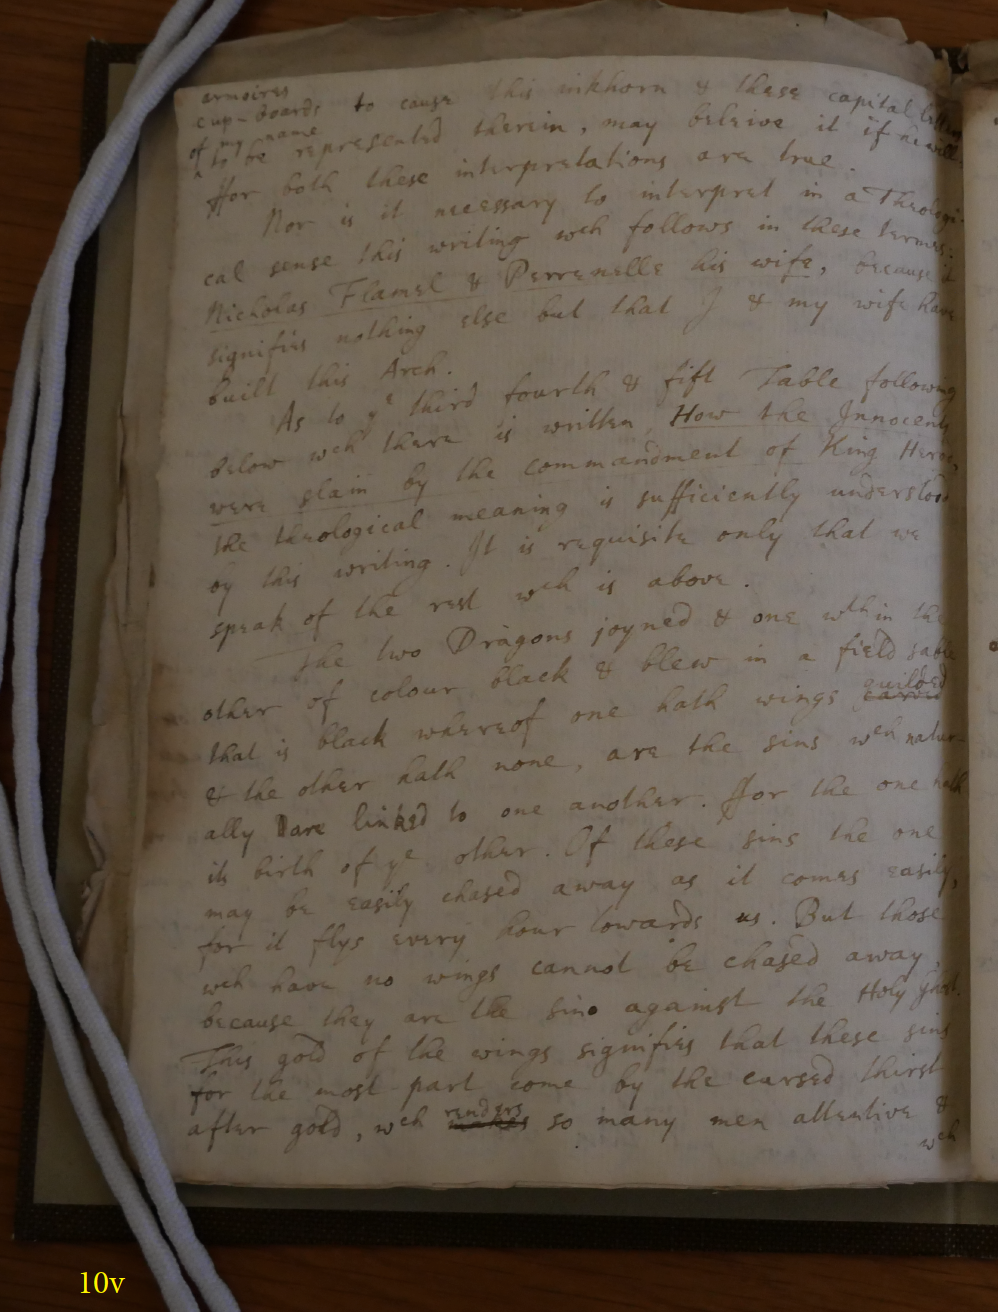 armoires
cup-boards to cause this inkhorn & these capital letters
of my name
^ to be represented therein, may beleive it if he will.
ffor both these interpretations are true.
Nor is it necessary to interpret in a Theologi-
cal sense this writing wch follows in these termes:
Nicholas Flamel & Perrenelle his wife, because it
signifies nothing else but that I & my wife have
built this Arch.
As to ye third fourth & fift Table following
below wch there is written, How the Innocents
were slain by the commandment of King Herod,
the theological meaning is sufficiently understood
by this writing. It is requisite only that we
speak of the rest wch is above.
The two Dragons joyned & one wthin the
other of colour black & blew in a field sable
guilded
that is black whereof one hath wings
& the other hath none, are the sins wch natur-
ally are linked to one another. ffor the one hath
its birth of ye other. Of these sins the one
may be easily chased away as it comes easily,
for it flys every hour towards us. But those
wch have no wings cannot be chased away,
because they are the sin against the Holy Ghost.
This gold of the wings signifies that these sins
for the most part come by the cursed thirst
renders
after gold, wch makes so many men attentive &
wch
10v